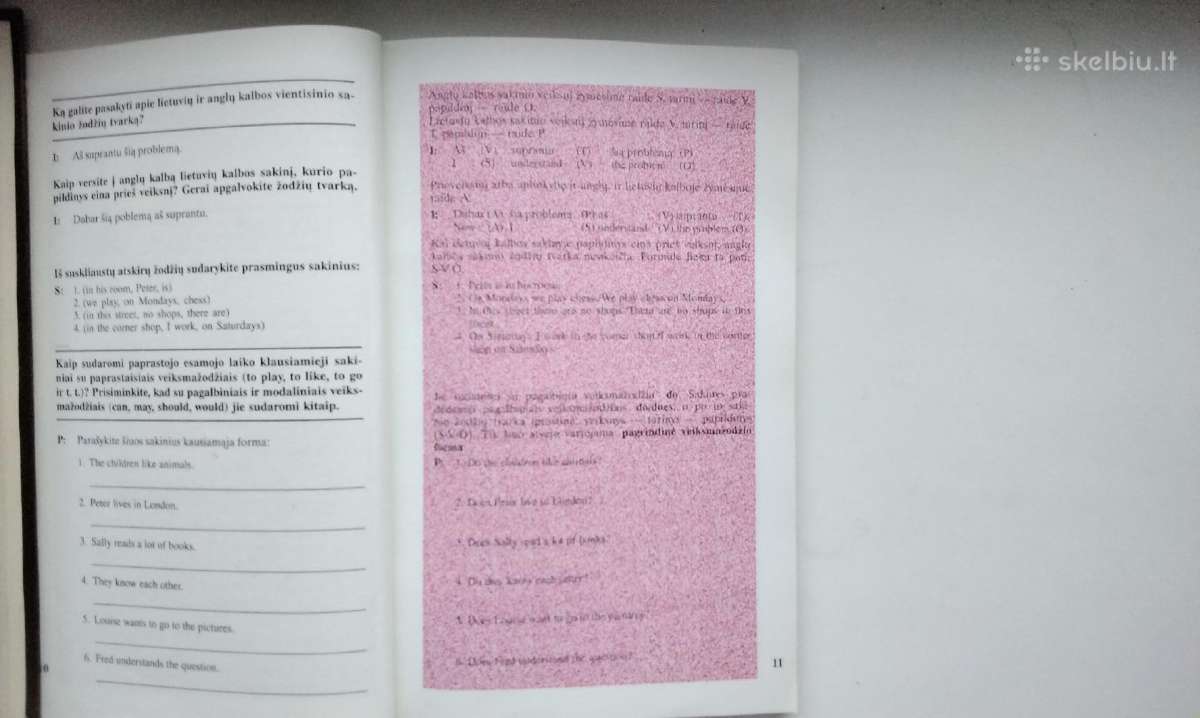 Ką galite pasakyti apie lietuvių ir anglų kalbos vientisinio sa-
kinio žodžių tvarką?
I: Aš suprantu šią problemą.
Kaip versite į anglų kalbą lietuvių kalbos sakinį, kurio pa-
pildinys eina prieš veiksnį? Gerai apgalvokite žodžių tvarką.
I: Dabar šią poblemą aš suprantu.
Iš suskliaustų atskirų žodžių sudarykite prasmingus sakinius:
S: 1. (in his room, Peter, is)
2. (we play, on Mondays, chess)
3. (in this street, no shops, there are)
4. (in the corner shop, I work, on Saturdays)
Kaip sudaromi paprastojo esamojo laiko klausiamieji saki-
niai su paprastaisiais veiksmažodžiais (to play, to like, to go
ir t. t.)? Prisiminkite, kad su pagalbiniais ir modaliniais veiks-
mažodžiais (can, may, should, would) jie sudaromi kitaip.
P: Parašykite šiuos sakinius kausiamąja forma:
1. The children like animals.
2. Peter lives in London.
3. Sally reads a lot of books.
4. They know each other.
5. Louise wants to go to the pictures.
6. Fred understands the question.
0
Anglų kalbos sakinio veiksnį žymėsime raide S, tarinį — raide V,
papildinį — raide O.
Lietuvių kalbos sakinio veiksnį žymėsime raide V, tarinį — raide
T, papildinį — raide P.
I: Aš (V) suprantu (T) šią problemą (P)
I (S) understand (V) the problem (O)
Prieveiksmį arba aplinkybę ir anglų, ir lietuvių kalboje žymėsime
raide A.
I: Dabar (A) šią problemą (P) aš (V) suprantu (T).
Now (A) I (S) understand (V) the problem (O).
Kai lietuvių kalbos sakinyje papildinys eina prieš veiksnį, anglų
kalbos sakinio žodžių tvarka
S-V-O.
S: 1. Peter is in his room.
2. On Mondays we play chess./We play chess on Mondays.
3. In this street there are no shops./There are no shops in this
street.
4. On Saturdays I work in the corner shop./I work in the corner
shop on Saturdays.
Jie sudaromi su pagalbiniu veiksmažodžiu do.
pagalbiniais veiksmažodžiais do/does, o po jo
žodžių tvarka veiksnys — tarinys — papildinys
(S-V-O). pagrindinė veiksmažodžio
forma
P: 1. Do the children like animals?
2. Does Peter live in London?
3. Does Sally read a lot of books?
4. Do they know each other?
5. Does Louise want to go to the pictures?
6. Does Fred understand the question?
11
skelbiu.lt